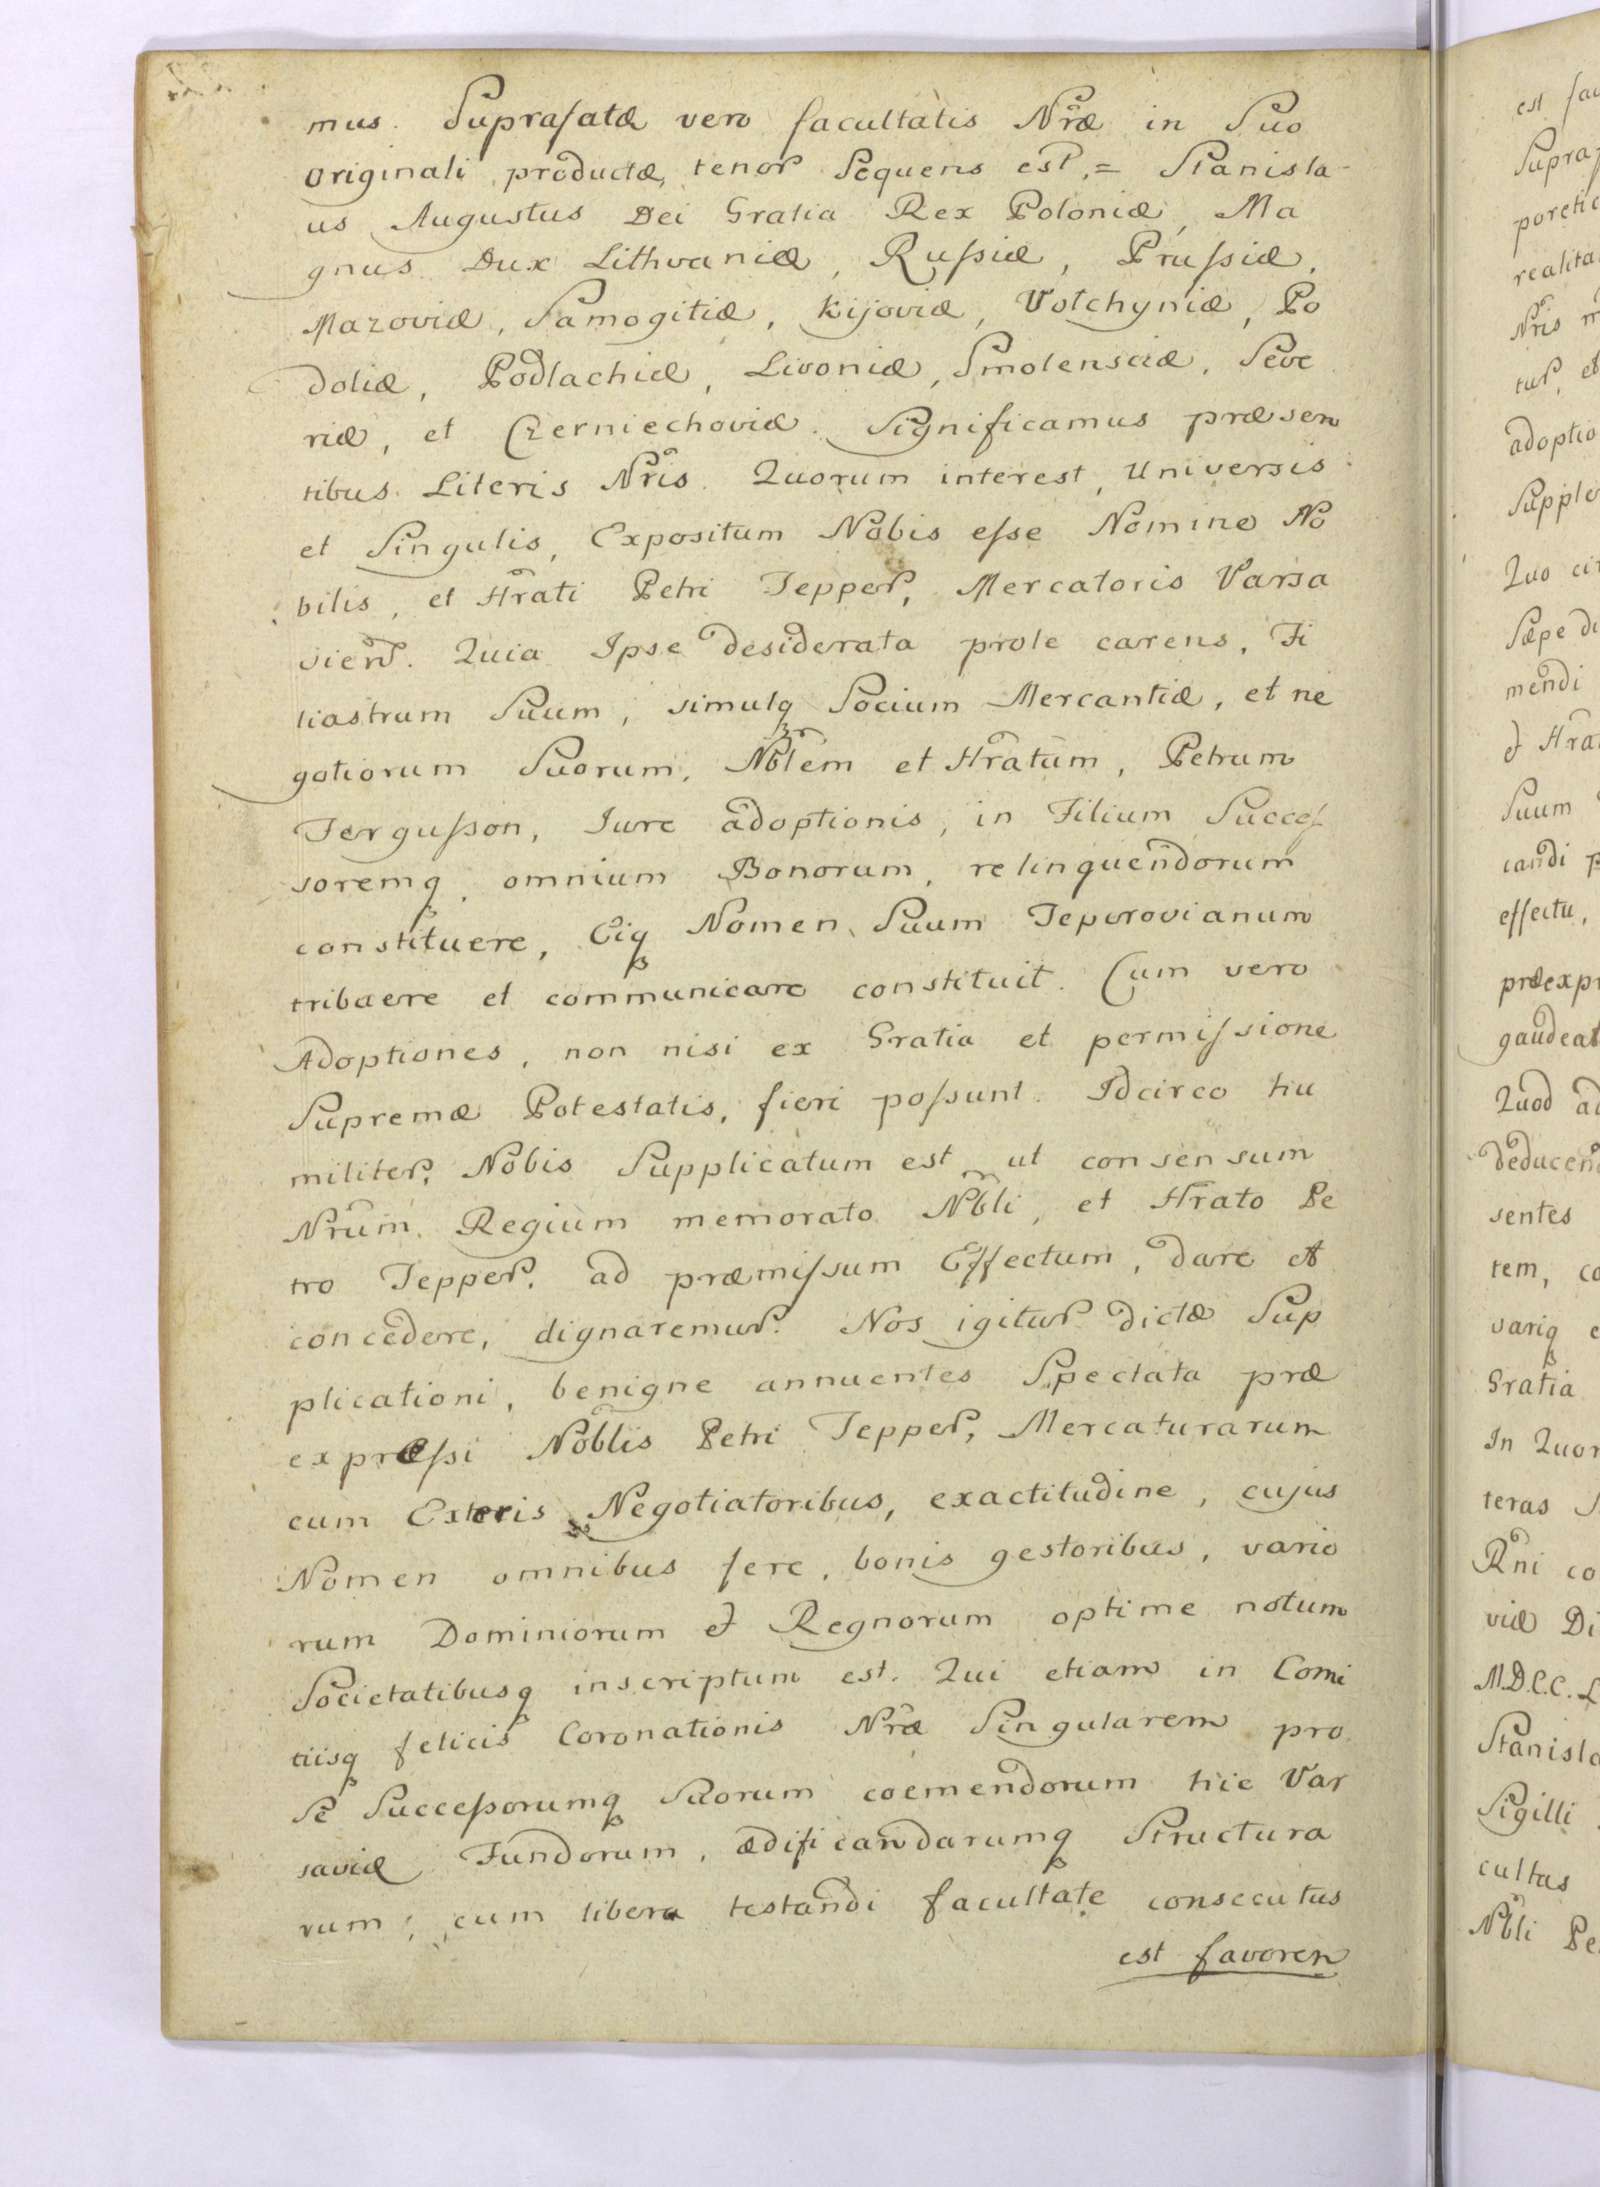 mus. Suprafatæ vero facultatis Nr̃æ in Suo
originali productæ, tenor Sequens est, = Stanisla-
us Augustus Dei Gratia Rex Poloniæ, Ma
gnus Dux Lithvaniæ, Rußiæ, Prußiæ,
Mazoviæ, Samogitiæ, Kijoviæ, Volchyniæ, Po
doliæ, Podlachiæ, Livoniæ, Smolensciæ, Seve
riæ, et Czerniechoviæ. Significamus præsen
tibus Literis Nr̃is. Quorum interest, Universis
et Singulis, Expositum Nobis eſse Nomine No
bilis, et Hr̃ati Petri Tepper, Mercatoris Varsa
vien. Quia Ipse desiderata prole carens, Fi
liastrum Suum, simulq Socium Mercantiæ, et ne
gotiorum Suorum, Nbl̃em et Hr̃atum, Petrum
Ferguſson, Jure adoptionis, in Filium Succeſ
soremq, omnium Bonorum, relinquendorum
constituere, Eiq Nomen Suum Teperovianum
tribuere et communicare constituit. Cum vero
Adoptiones, non nisi ex Gratia et permiſsione
Supremæ Potestatis, fieri poſsunt. Idcirco hu
militer, Nobis Supplicatum est ut consensum
Nr̃um Regium memorato Nb̃li, et Hr̃ato Pe
tro Tepper, ad præmiſsum Effectum, dare et
concedere, dignaremur. Nos igitur dictæ Sup
plicationi, benigne annuentes Spectata præ
expreſsi Noblis Petri Tepper, Mercaturarum
cum Exteris Negotiatoribus, exactitudine, cujus
Nomen omnibus fere, bonis gestoribus, vario
rum Dominiorum et Regnorum optime notum
Societatibusq inscriptum est. Qui etiam in Comi
tiisq felicis Coronationis Nr̃æ Singularem pro
Se Succeſsorumq Suorum coemendorum hic Var
saviæ Fundorum, ædificandarumq Structura
rum, cum libera testandi facultate consecutus
est favorem
est fav
Supra
poretic
realita
Nr̃is m
tur, et
adoptio
Supple
Quo cir
Sæpe di
mendi
et Hra
Suum
candi p
effectu,
præexpr
gaudeat
Quod ad
deducen
sentes
tem, co
variq e
Gratia
In Quor
teras S
Rñi co
viæ Di
M.D.C.C.L
Stanisla
Sigilli
cultas
Nb̃li Pe